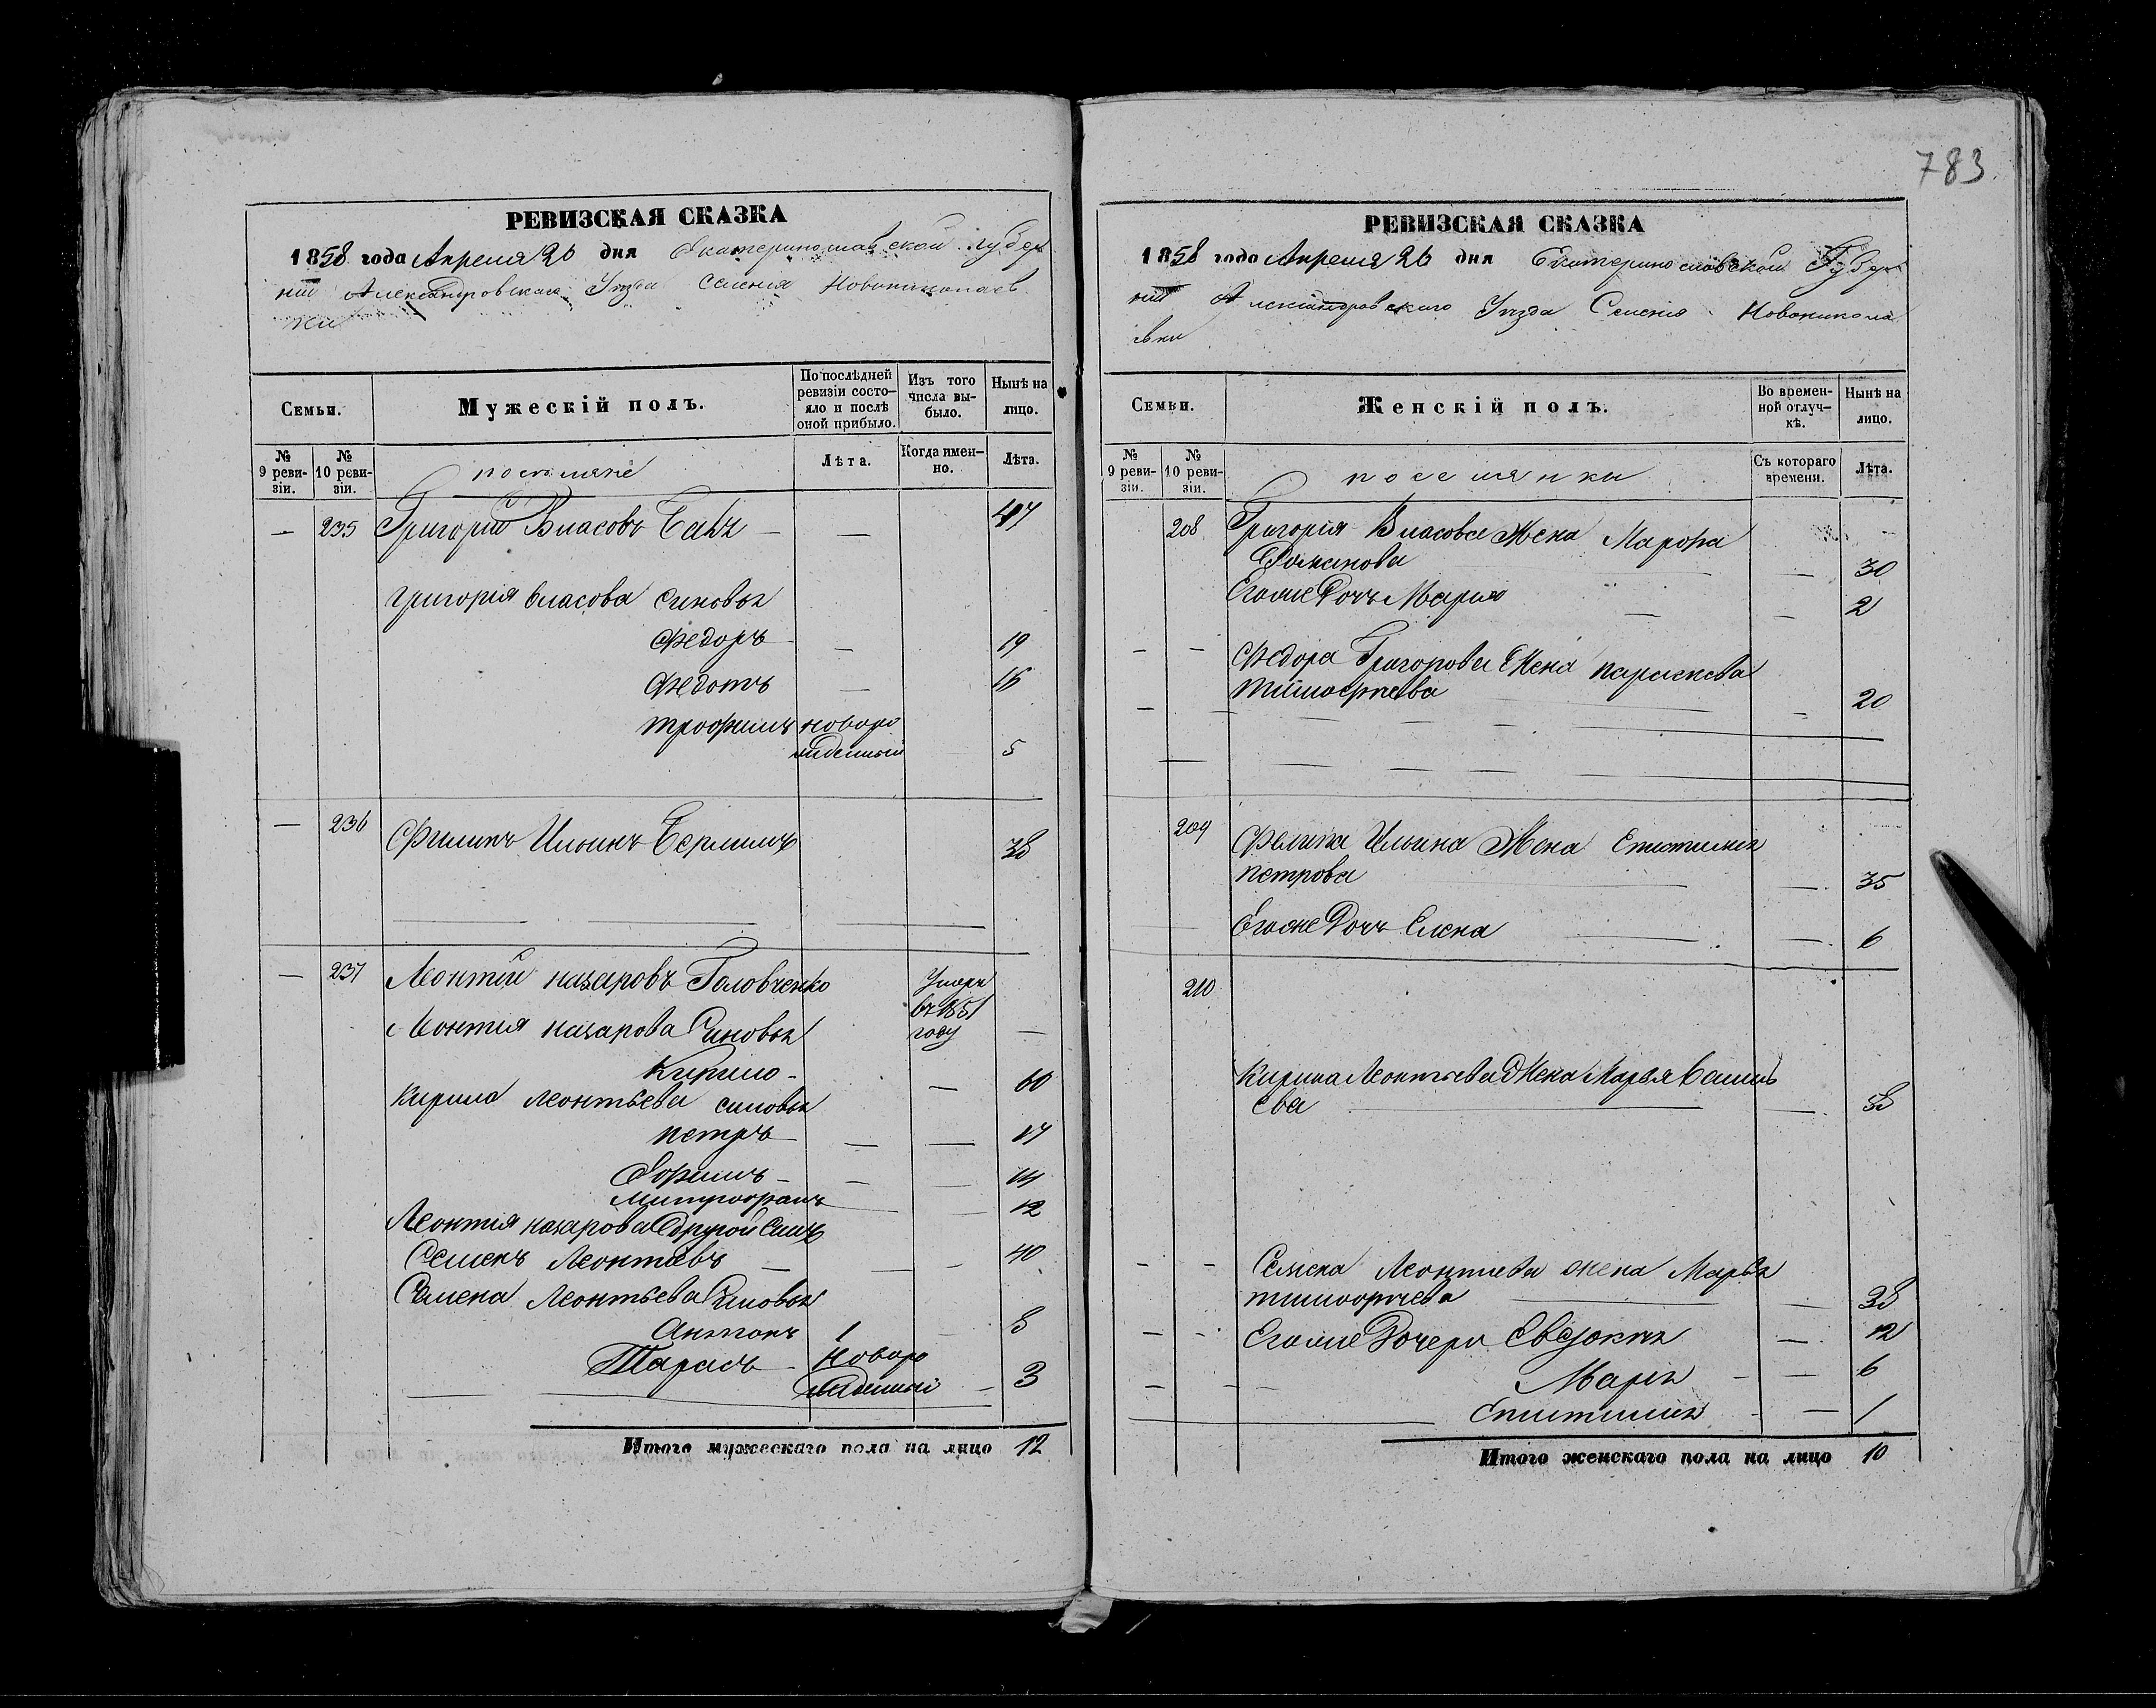 РЕВИЗСКАЯ СКАЗКА
1858 года Апреля 26 дня Екатеринославской губер
нии Александровскаго Уезда Селения Новониколаев
ки
Семьи.
Мужескій полъ.
По послѣдней
ревизіи состо-
яло и послѣ
оной прибыло.
Изъ того
числа вы-
было.
Нынѣ на
лицо.
№
9 реви-
зіи.
№
10 реви-
зіи.
поселяне
Лѣта.
Когда имен-
но.
Лѣта.
— 235 Григорій Власовъ — — 47
Григорія Власова синовья
Федоръ — 19
Федотъ — 16
Трофимъ новоро
жденный 5
— 236 Филипъ Ильинъ 38
— 237 Леонтій Назаровъ Головченко Умеръ
въ 1851
году —
Леонтія Назарова Синовья
Кирило — — 60
Кирила Леонтьева синовья
Петръ — — 17
Ефимъ — — 14
Митрофанъ — 12
Леонтія Назарова другой Синъ
Семенъ Леонтьевъ — — 40
Семена Леонтьева Синовья
Антонъ 1 — 8
Тарасъ новоро
жденный — 3
Итого мужескаго пола на лицо 12
783
РЕВИЗСКАЯ СКАЗКА
1858 года Апреля 26 дня Екатеринославской Губер
нии Александровскаго Уезда Селения Новоникола
евки
Семьи.
Женскій полъ.
Во времен-
ной отлуч-
кѣ.
Нынѣ на
лицо.
№
9 реви-
зіи.
№
10 реви-
зіи.
поселянки
Съ котораго
времени.
Лѣта.
208 Григорія Власова Жена Марфа
Романова — 30
Егоже Дочъ Мария — 2
Федора Григорова Жена Параскева
Тимофеева — 20
209 Филипа Ильина Жена Епистимия
Петрова — 35
Егоже Дочъ Елена — 6
210
Кирила Леонтьева Жена Марья Василь
ева — 58
Семена Леонтиева жена Марья
Тимофеева — 38
Егоже Дочери Евдокия — 12
Мария — 6
Епистимия — 1
Итого женскаго пола на лицо 10